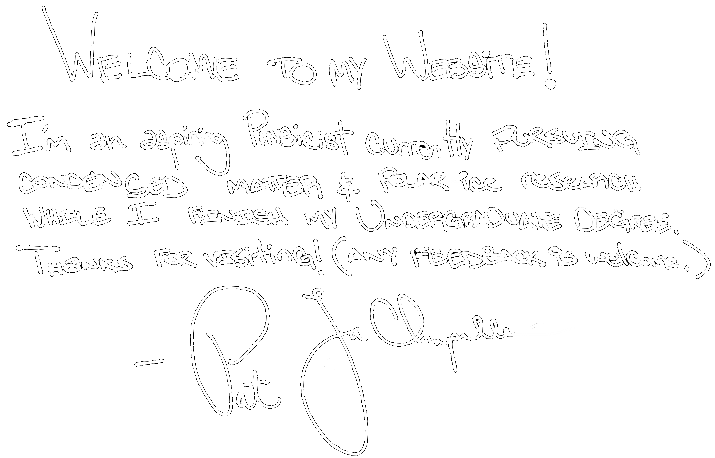 WELCOME TO MY WEBSITE!
I'm an aspiring Physicist currently PURSUING
CONDENSED MATTER & POLAR ICE RESEARCH
WHILE I FINISH MY UNDERGRADUATE DEGREE.
THANKS FOR VISITING! (ANY FEEDBACK IS WELCOME.)
- Pat